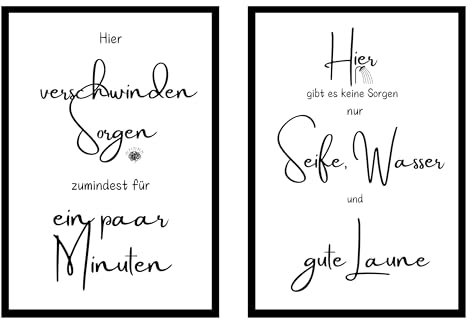 Hier
verschwinden
Sorgen
zumindest für
ein paar
Minuten
Hier
gibt es keine Sorgen
nur
Seife, Wasser
und
gute Laune